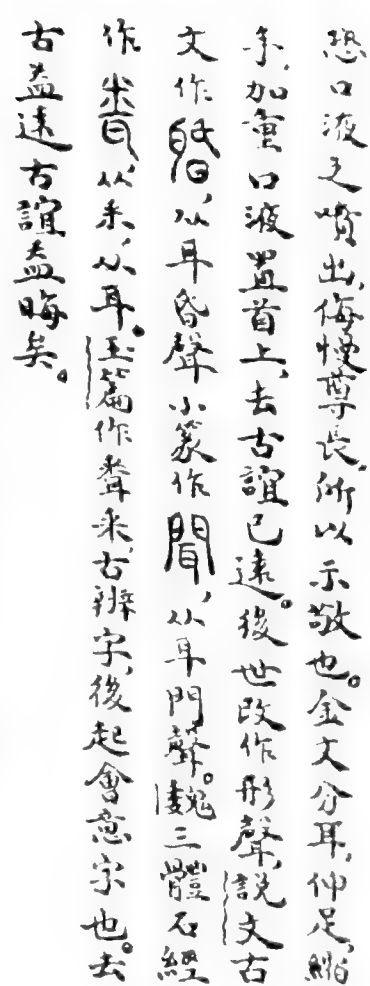 恐口液之噴出,侮慢尊長,所以示敬也。金文分耳,仰足,縮
手,加重口液置首上,去古誼已遠。後世改作形聲,說文古
文作䎽,从耳昏聲小篆作聞,从耳門聲。魏三體石經
作,从釆,从耳。玉篇作釆,古辨字,後起會意字也。去
古益遠古誼益晦矣。